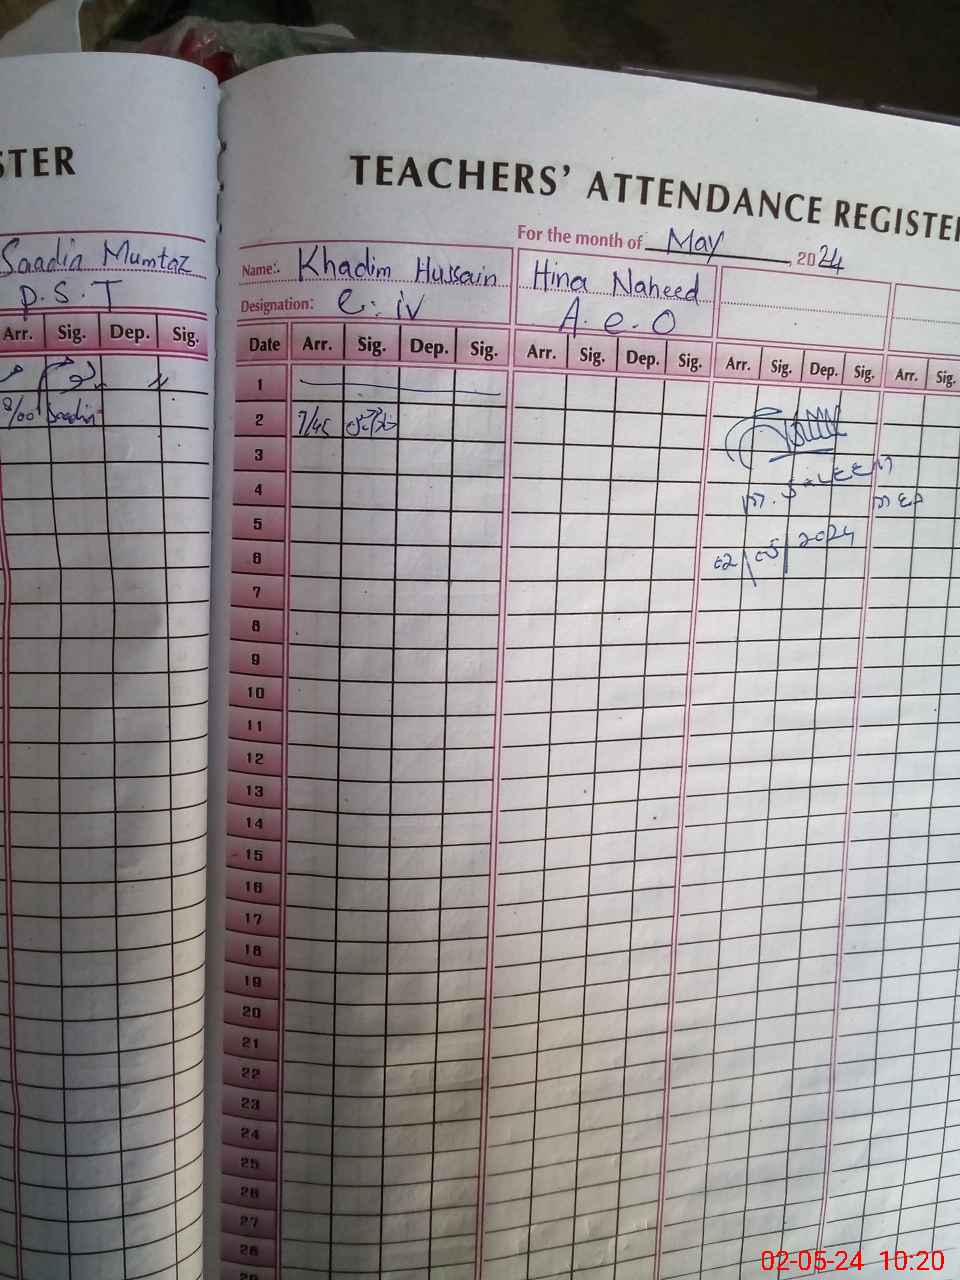 STER
Saadia Mumtaz
P.S.T
Arr. Sig. Dep. Sig.
8/00 Saadia
TEACHERS' ATTENDANCE REGISTER
For the month of May, 2024
Name: Khadim Hussain Hina Naheed
Designation: C.iv A.e.O
Date Arr. Sig. Dep. Sig. Arr. Sig. Dep. Sig. Arr. Sig. Dep. Sig. Arr. Sig.
1
2 7/45
3
M. SALEEM
4
MEA
5
02/05/2024
6
7
8
9
10
11
12
13
14
15
16
17
18
19
20
21
22
23
24
25
26
27
28
29
02-05-24 10:20